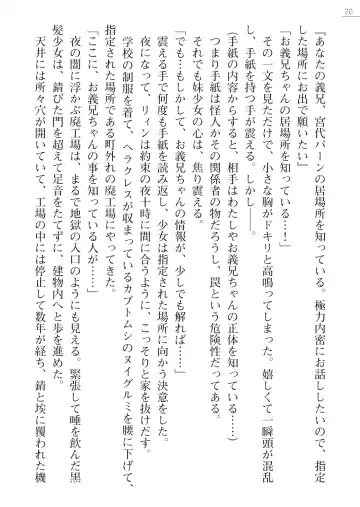 20
『あなたの義兄、宮代バーンの居場所を知っている。極力内密にお話ししたいので、指定
した場所にお出で願いたい』
「お義兄ちゃんの居場所を知っている……!」
その一文を見ただけで、小さな胸がドキリと高鳴ってしまった。嬉しくて一瞬頭が混乱
し、手紙を持つ手が震える。しかし――。
(手紙の内容からすると、相手はわたしやお義兄ちゃんの正体を知っている)
つまり手紙は怪人かその関係者の物だろうし、罠という危険性だってある。
それでも妹少女の心は、焦り震える。
「でも…もしかして、お義兄ちゃんの情報が、少しでも解れば……」
震える手で何度も手紙を読み返し、少女は指定された場所に向かう決意をした。
夜になって、リィンは約束の夜十時に間に合うように、こっそりと家を抜けだす。
学校の制服を着て、ヘラクレスが収まっているカブトムシのヌイグルミを腰に下げて、
指定された場所である町外れの廃工場にやってきた。
「ここに、お義兄ちゃんの事を知っている人が……」
夜の闇に浮かぶ廃工場は、まるで地獄の入口のようにも見える。緊張して唾を飲んだ黒
髪少女は、錆びた門を超えて足音をたてずに、建物内へと歩を進めた。
天井には所々穴が開いていて、工場の中には停止して数年が経ち、錆と埃に覆われた機